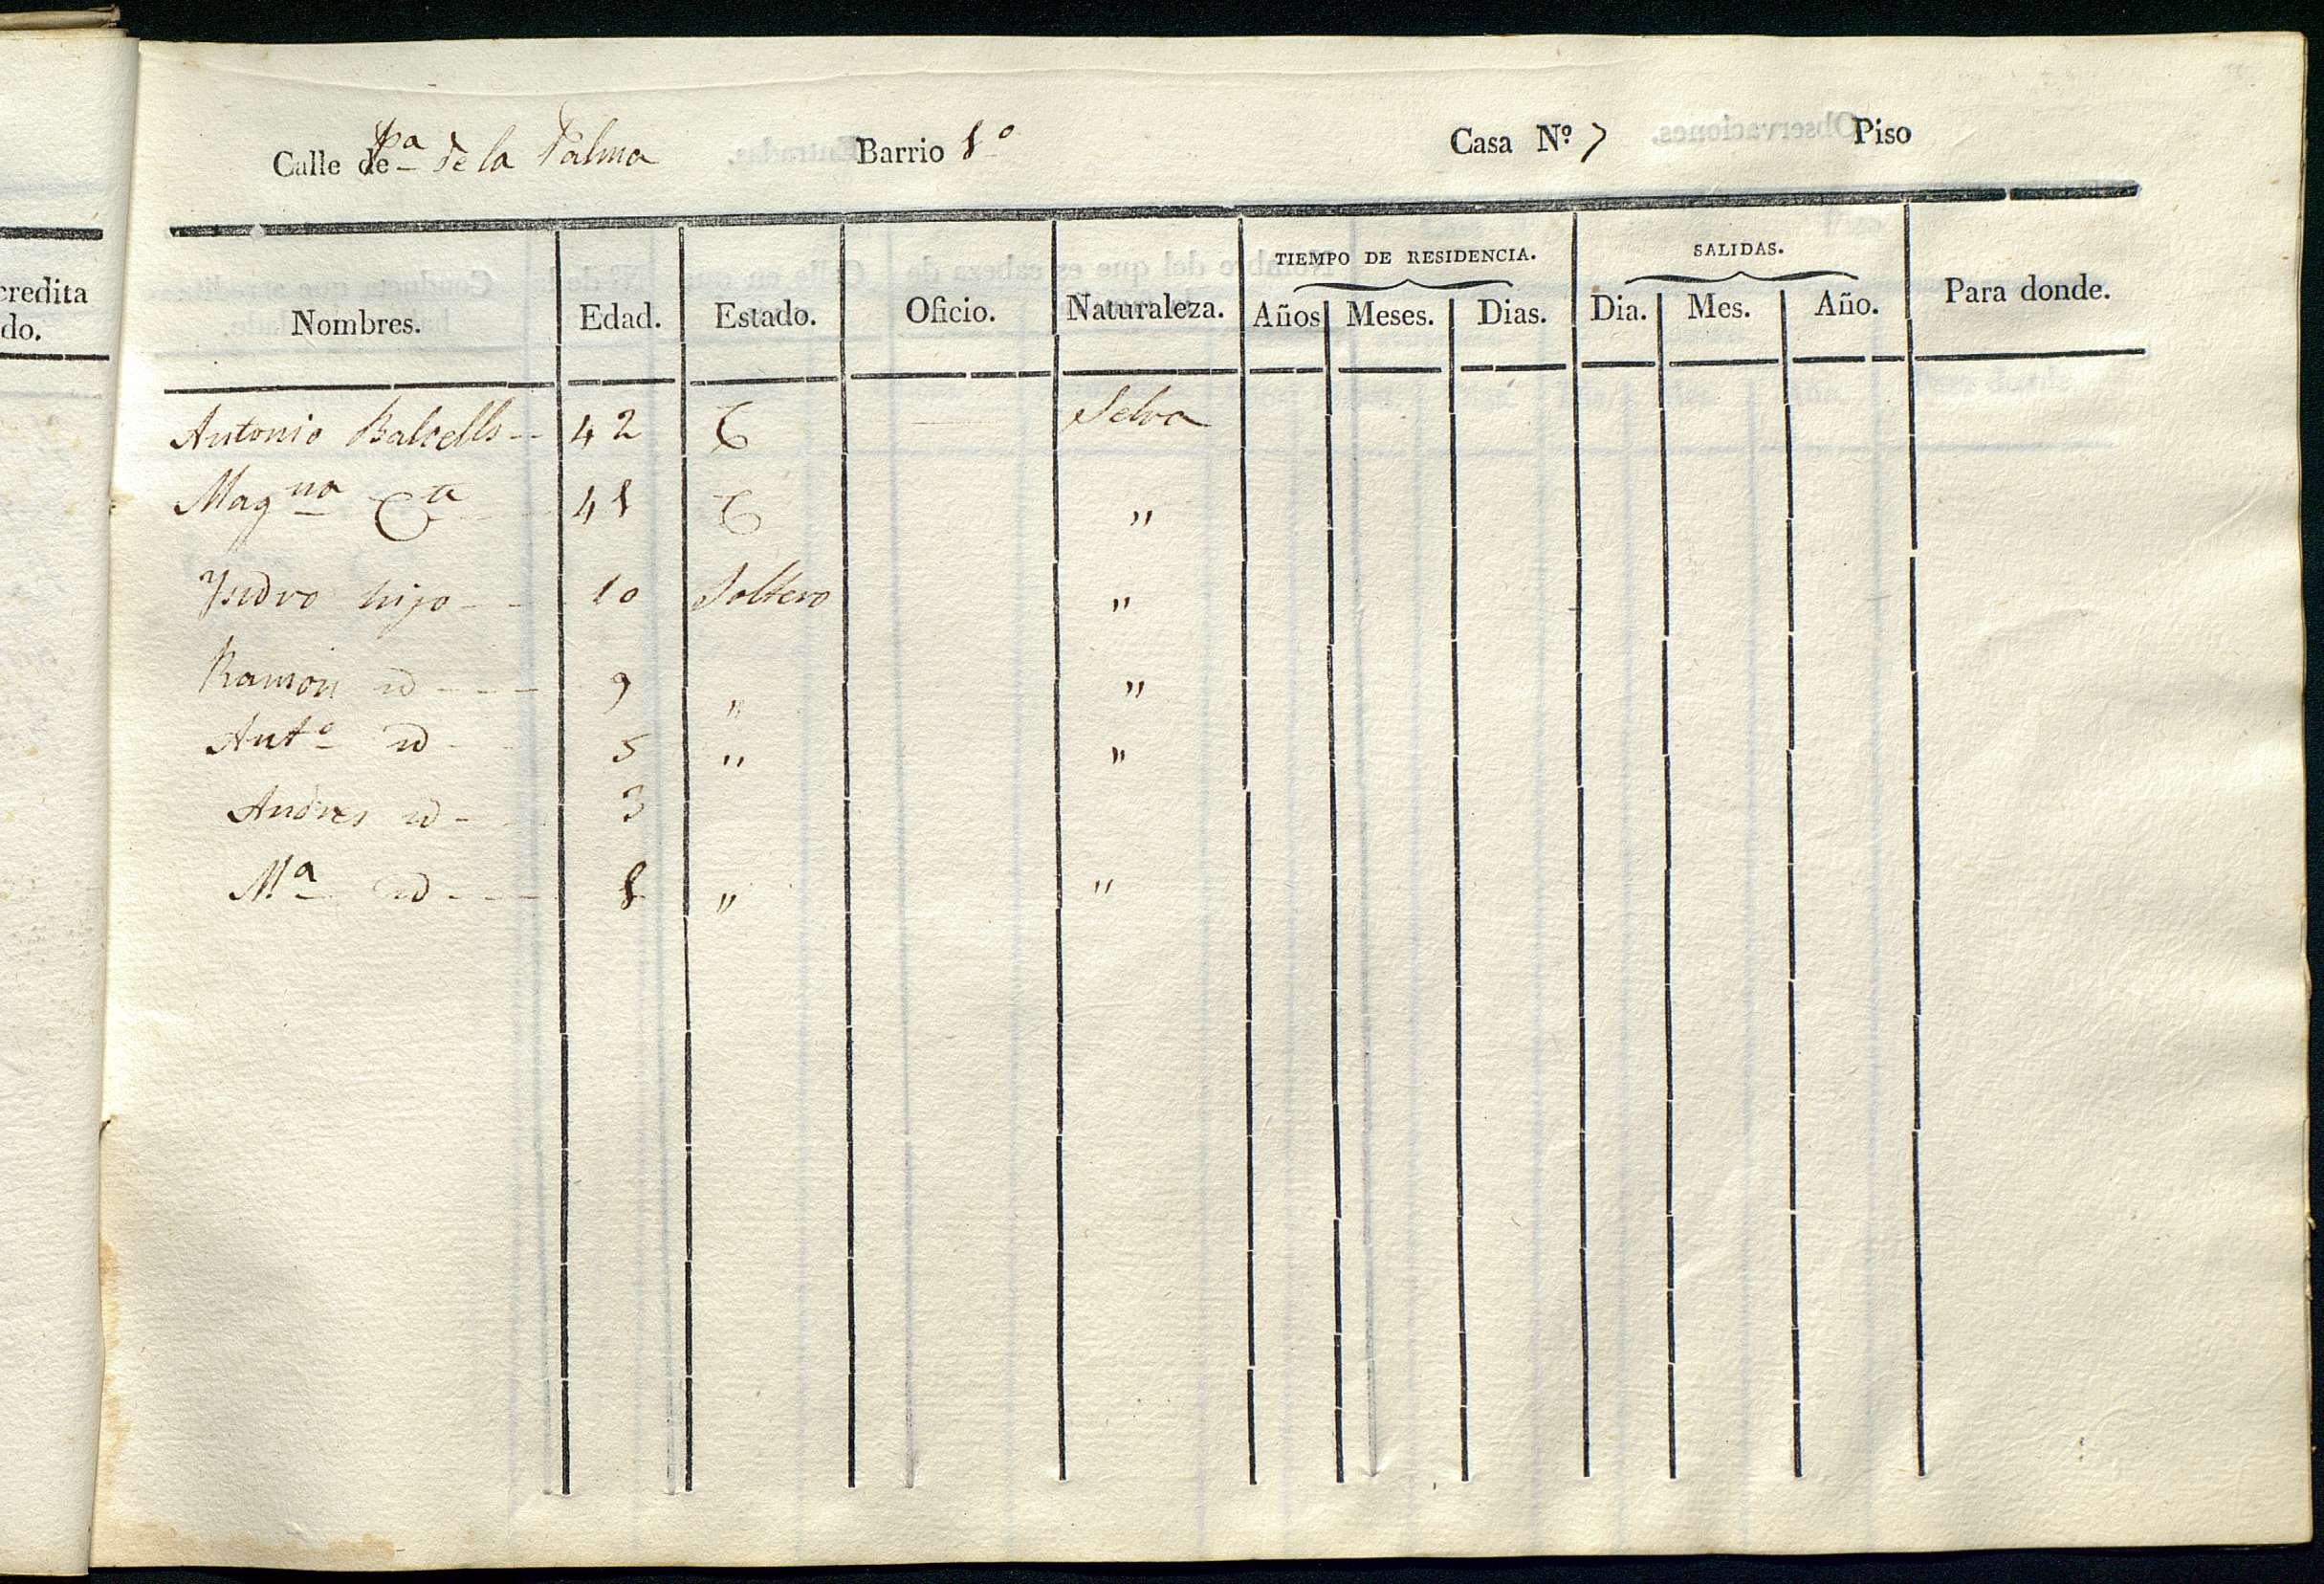 credita
do.
Calle de Pª de la Palma Barrio 1º Casa Nº 7 Piso
TIEMPO DE RESIDENCIA. SALIDAS.
Nombres. Edad. Estado. Oficio. Naturaleza. Años Meses. Dias. Dia. Mes. Año. Para donde.
Antonio Balcells 42 C Selva
Magna Cta 41 C "
Ysidro hijo 10 Soltero "
Ramon id 9 " "
Antº id 5 " "
Andres id 3
Mª id 1 " "